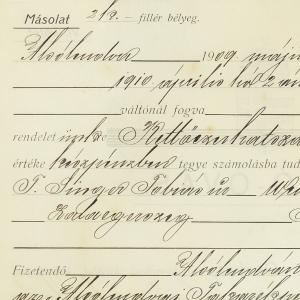 Másolat 2 k. – fillér bélyeg.
Alsólendva 1909. május
1910 április hó 2
váltónál fogva
rendelet
értéke készpénzben tegye számolásba tud
T. Singer Tóbiás úr
Zalaegerszeg
Fizetendő Alsólendván
Alsólendvai Takarék